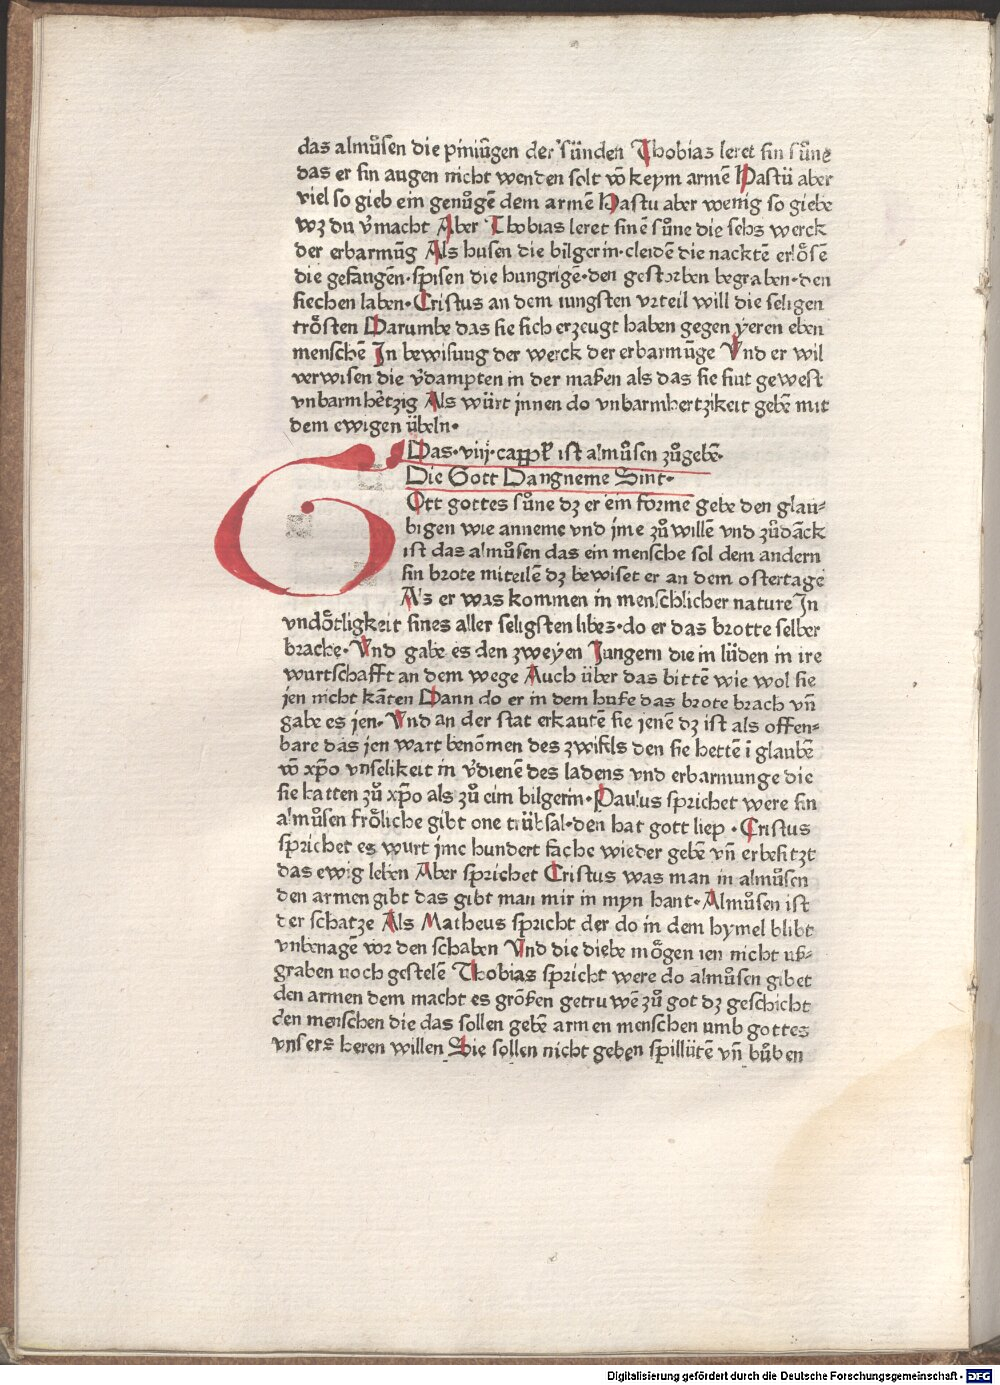 das almůsen die piniūgen der sünden Thobias leret sin sůne
das er sin augen nicht wenden solt vō keym armē Hastu aber
viel so gieb ein genůgē dem armē Hastu aber wenig so giebe
wz du v̄macht Aber Thobias leret sinē sůne die sehs werck
der erbarmūg Als husen die bilgerin·cleidē die nacktē erlősē
die gefangēn·spisen die hungrigē·den gestorben begraben·den
siechen laben·Cristus an dem iungsten vrteil will die seligen
trősten Darumbe das sie sich erzeugt haben gegen yeren eben
menschē In bewisuug der werck der erbarmūge Vnd er wil
verwisen die v̄dampten in der maßen als das sie sint gewest
vnbarmhētzig Als würt jnnen do vnbarmhertzikeit gebē mit
dem ewigen übeln·
Das·viij·cappł ist almůsen zůgebē·
Die Gott Dangneme Sint·
Ott gottes sůne dz er ein forme gebe den glau-
bigen wie anneme vnd jme zů willē vnd zůdāck
ist das almůsen das ein mensche sol dem andern
sin brote miteilē dz bewiset er an dem ostertage
Als er was kommen in menschlicher nature In
vndőtligkeit sines aller seligsten libes·do er das brotte selber
brache·Vnd gabe es den zweyen Jungern die in lüden in ire
wurtschafft an dem wege Auch über das bittē wie wol sie
jen nicht kātēn Dann do er in dem huße das brote brach vn̄
gabe es jen·Vnd an der stat erkantē sie jenē dz ist als offen-
bare das jen wart benōmen des zwifels den sie hettē ī glaubē
vō xp̄o vnselikeit in v̄dienē des ladens vnd erbarmunge die
sie hatten zů xp̄o als zů eim bilgerin·Paulus sprichet were sin
almůsen frőliche gibt one trübsal·den hat gott liep·Cristus
sprichet es wurt jme hundert fache wieder gebē vn̄ erbesitzt
das ewig leben Aber sprichet Cristus was man in almůsen
den armen gibt das gibt man mir in myn hant·Almůsen ist
der schatze Als Matheus spricht der do in dem hymel blibt
vnbenagē vor den schaben Vnd die diebe mőgen ien nicht uß-
graben noch gestelē Thobias spricht were do almůsen gibet
den armen dem macht es grőßen getruwē zů got dz geschicht
den menschen die das sollen gebē armen menschen umb gottes
vnsers heren willen Sie sollen nicht geben spillütē vn̄ bůben
Digitalisierung gefördert durch die Deutsche Forschungsgemeinschaft - DFG